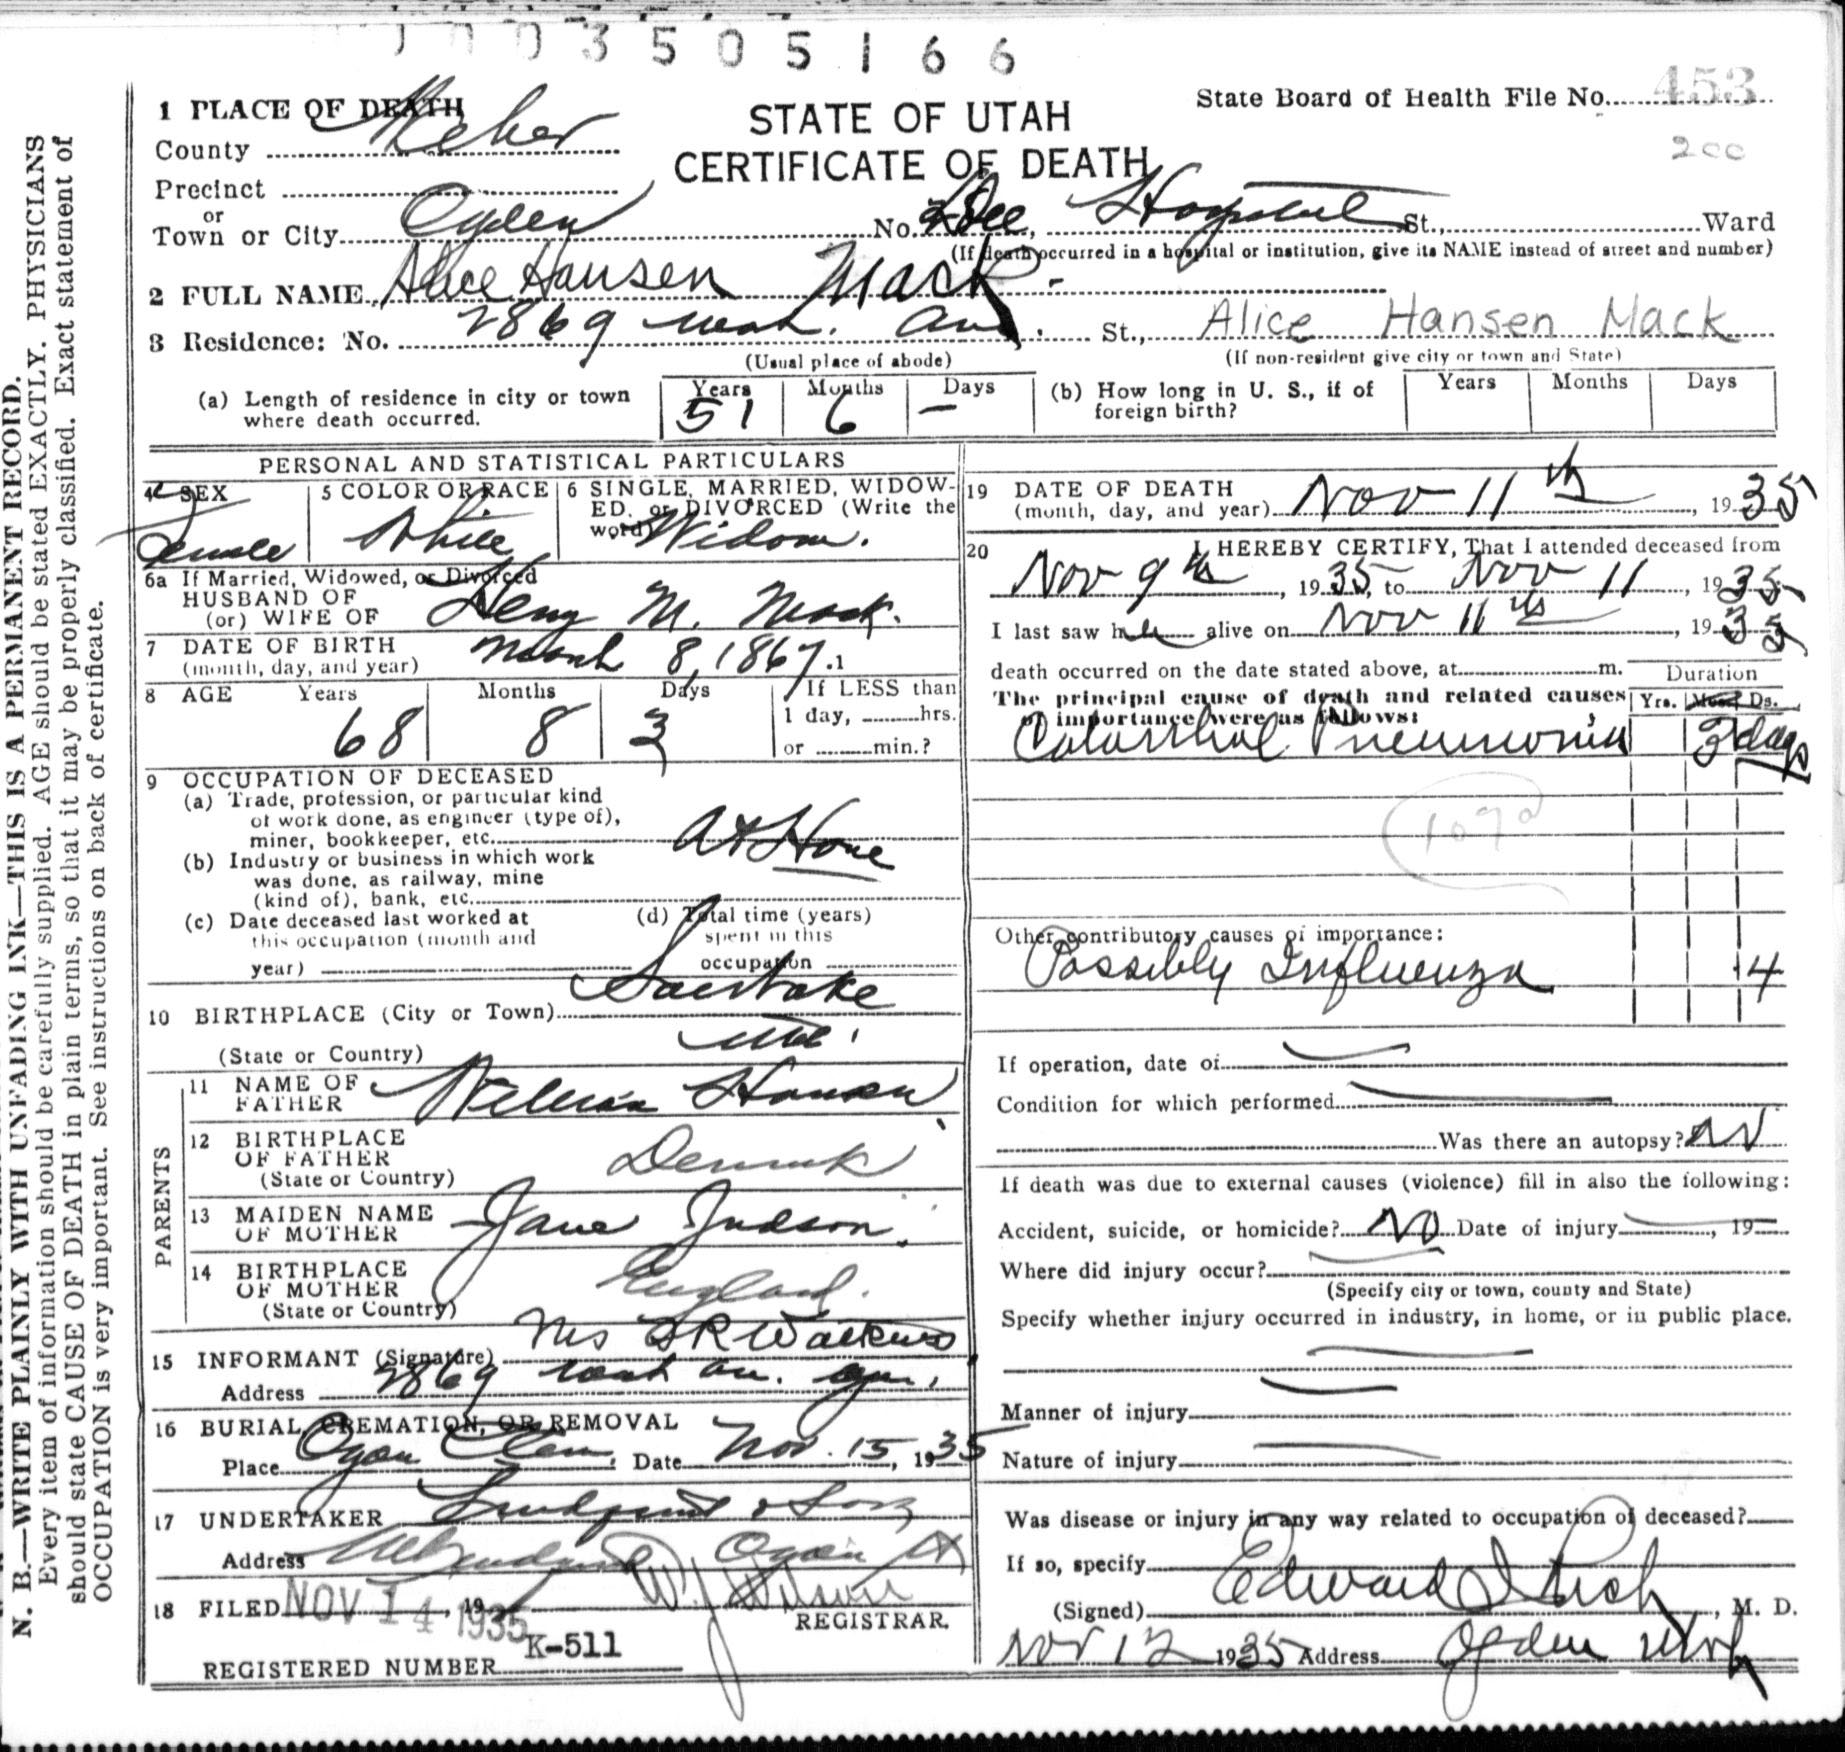 003505166
1 PLACE OF DEATH
State Board of Health File No. 453
200
STATE OF UTAH
CERTIFICATE OF DEATH
County Weber
Precinct
or
Town or City Ogden No. Dee Hospital St., Ward
(If death occurred in a hospital or institution, give its NAME instead of street and number)
2 FULL NAME Alice Hansen Mack
3 Residence: No. 2869 Wash. Ave. St., Alice Hansen Mack
(Usual place of abode) (If non-resident give city or town and State)
(a) Length of residence in city or town where death occurred. Years 51 Months 6 Days –
(b) How long in U. S., if of foreign birth? Years Months Days
PERSONAL AND STATISTICAL PARTICULARS
4 SEX Female
5 COLOR OR RACE White
6 SINGLE, MARRIED, WIDOWED, or DIVORCED (Write the word) Widow.
6a If Married, Widowed, or Divorced
HUSBAND OF
(or) WIFE OF Henry M. Mack.
7 DATE OF BIRTH
(month, day, and year) March 8, 1867.
8 AGE Years 68 Months 8 Days 3 If LESS than
1 day, hrs.
or min.?
9 OCCUPATION OF DECEASED
(a) Trade, profession, or particular kind
of work done, as engineer (type of),
miner, bookkeeper, etc. At Home
(b) Industry or business in which work
was done, as railway, mine
(kind of), bank, etc.
(c) Date deceased last worked at
this occupation (month and
year)
(d) Total time (years)
spent in this
occupation
10 BIRTHPLACE (City or Town) Salt Lake
(State or Country) Utah
PARENTS
11 NAME OF
FATHER William Hansen
12 BIRTHPLACE
OF FATHER
(State or Country) Denmark
13 MAIDEN NAME
OF MOTHER Jane Judson.
14 BIRTHPLACE
OF MOTHER
(State or Country) England.
15 INFORMANT (Signature) Mrs S R Watkins
Address 2869 Wash Av. Ogden,
16 BURIAL, CREMATION, OR REMOVAL
Place Ogden Cem. Date Nov. 15, 1935
17 UNDERTAKER Lindquist & Sons
Address Ogden Ut
18 FILED NOV 14 1935, 19 W J Wilson
REGISTRAR.
REGISTERED NUMBER K-511
19 DATE OF DEATH
(month, day, and year) Nov 11th, 1935
20 I HEREBY CERTIFY, That I attended deceased from
Nov 9th, 1935, to Nov 11, 1935
I last saw her alive on Nov 11th, 1935
death occurred on the date stated above, at m.
Duration
The principal cause of death and related causes
of importance were as follows:
Yrs. Mos. Ds.
Catarrhal Pneumonia 3 days
107a
Other contributory causes of importance:
Possibly Influenza 4
If operation, date of
Condition for which performed
Was there an autopsy? No
If death was due to external causes (violence) fill in also the following:
Accident, suicide, or homicide? No Date of injury, 19
Where did injury occur?
(Specify city or town, county and State)
Specify whether injury occurred in industry, in home, or in public place.
Manner of injury
Nature of injury
Was disease or injury in any way related to occupation of deceased?
If so, specify
(Signed) Edward I Rich, M. D.
Nov 12 1935 Address Ogden Utah
N. B.—WRITE PLAINLY WITH UNFADING INK—THIS IS A PERMANENT RECORD.
Every item of information should be carefully supplied. AGE should be stated EXACTLY. PHYSICIANS
should state CAUSE OF DEATH in plain terms, so that it may be properly classified. Exact statement of
OCCUPATION is very important. See instructions on back of certificate.